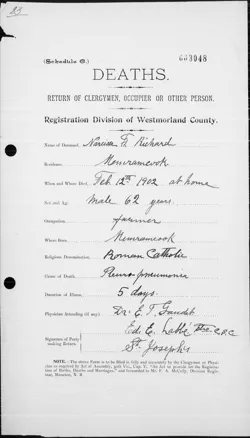 23
(Schedule C.)
003048
DEATHS.
RETURN OF CLERGYMEN, OCCUPIER OR OTHER PERSON.
Registration Division of Westmorland County.
Name of Deceased, Narcisse F Richard
Residence, Memramcook
When and Where Died, Feb 12th 1902 at home
Sex and Age Male 62 years.
Occupation, farmer
Where Born, Memramcook
Religious Denomination, Roman Catholic
Cause of Death, Pleuro pneumonia
Duration of Illness, 5 days.
Physician Attending (if any) Dr E. T. Gaudet
Signature of Party making Return, Ed E. Labbé C.S.C.
St Joseph's
NOTE.—The above Form is to be filled in fully and accurately by the Clergyman or Physician as required by Act of Assembly, 50th Vic., Cap. V, "An Act to provide for the Registration of Births, Deaths and Marriages," and forwarded to Mr. F. A. McCully, Division Registrar, Moncton, N. B.